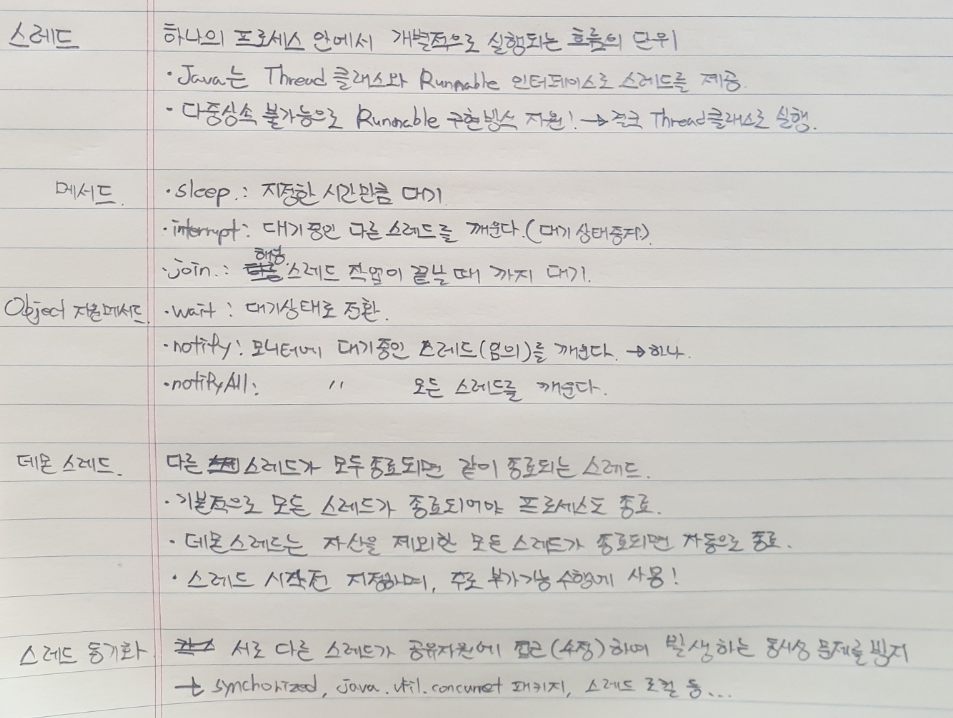 스레드 하나의 프로세스 안에서 개별적으로 실행되는 흐름의 단위
· Java는 Thread 클래스와 Runnable 인터페이스로 스레드를 제공.
· 다중상속 불가능으로 Runnable 구현방식 지원! → 결국 Thread클래스로 실행.
메서드. · sleep. : 지정한 시간만큼 대기.
· interrupt : 대기중인 다른 스레드를 깨운다. (대기 상태중지).
· join. : 해당 스레드 작업이 끝날 때 까지 대기.
Object 지원메서드. · wait : 대기상태로 전환.
· notify : 모니터에 대기중인 스레드(임의)를 깨운다. → 하나.
· notifyAll : 〃 모든 스레드를 깨운다.
데몬 스레드. 다른 스레드가 모두 종료되면 같이 종료되는 스레드.
· 기본적으로 모든 스레드가 종료되어야 프로세스도 종료.
· 데몬스레드는 자신을 제외한 모든 스레드가 종료되면 자동으로 종료.
· 스레드 시작전 지정하며, 주로 부가기능 수행에 사용!
스레드 동기화 서로 다른 스레드가 공유자원에 접근(수정)하여 발생하는 동시성 문제를 방지
→ synchorized, java.util.concurret 패키지, 스레드 로컬 등...